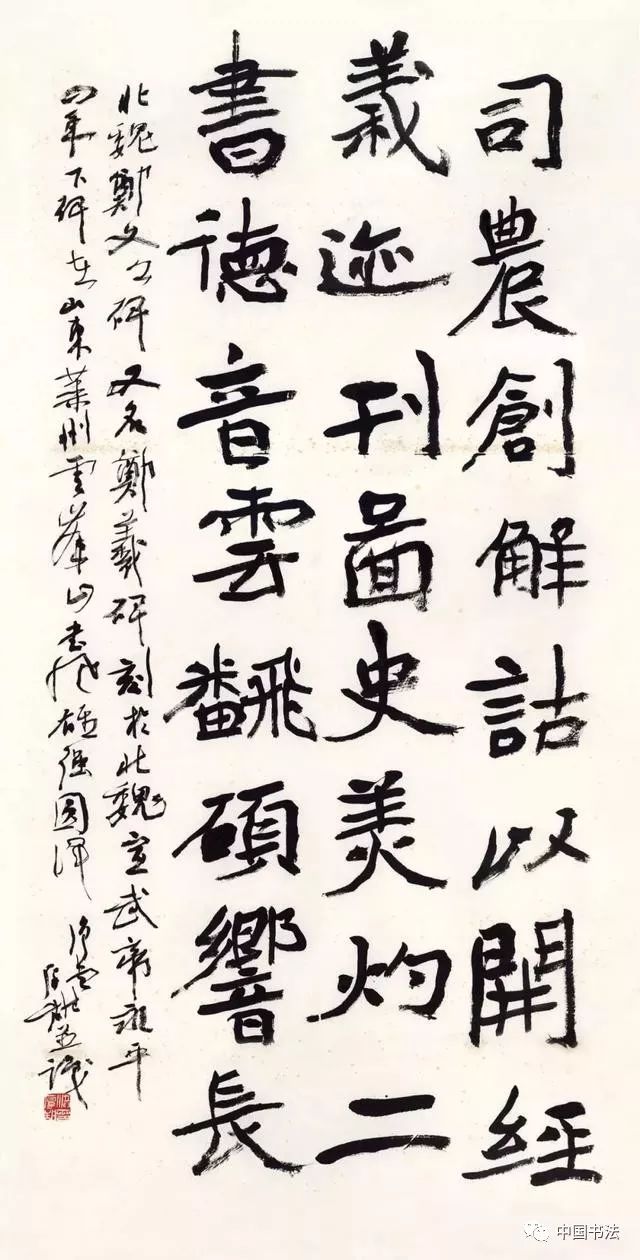 司農創解詁以開經
義迹刊圖史美灼二
書德音雲飜碩響長
北魏鄭文公碑又名鄭羲碑刻於北魏宣武帝永平
四年下碑在山東萊州雲峰山書風雄強圓渾
中国书法